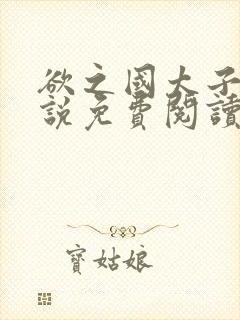 欲之國大子
說免費閱讀
寶姑娘